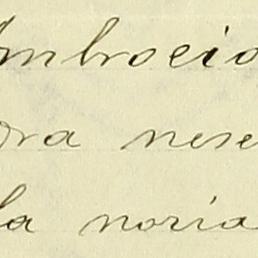 Ambrocio
ora nese
la noria